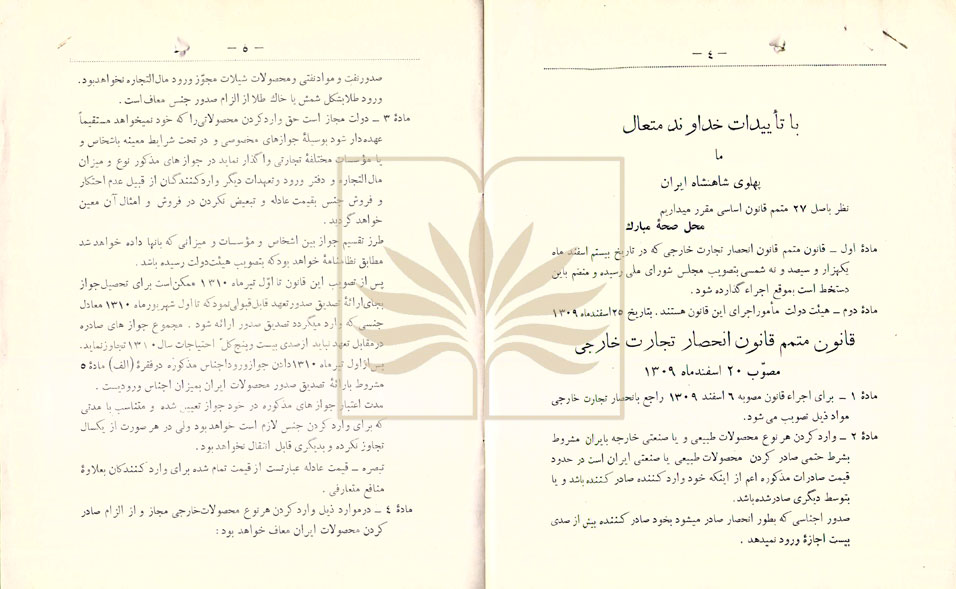 - ٤ -
با تأییدات خداوند متعال
ما
پهلوی شاهنشاه ایران
نظر باصل ۲۷ متمم قانون اساسی مقرر میداریم
محل صحهٔ مبارك
مادهٔ اول ـ قانون متمم قانون انحصار تجارت خارجی که در تاریخ بیستم اسفند ماه
یکهزار و سیصد و نه شمسی بتصویب مجلس شورای ملی رسیده و منضم باین
دستخط است بموقع اجراء گذارده شود .
مادهٔ دوم ـ هیئت دولت مأمور اجرای این قانون هستند . بتاریخ ۲۵ اسفندماه ۱۳۰۹
قانون متمم قانون انحصار تجارت خارجی
مصوّب ۲۰ اسفند ماه ۱۳۰۹
مادهٔ ۱ ـ برای اجراء قانون مصوبه ۶ اسفند ۱۳۰۹ راجع بانحصار تجارت خارجی
مواد ذیل تصویب می شود.
مادهٔ ۲ ـ وارد کردن هر نوع محصولات طبیعی و یا صنعتی خارجه بایران مشروط
بشرط حتمی صادر کردن محصولات طبیعی یا صنعتی ایران است در حدود
قیمت صادرات مذکوره اعم از اینکه خود وارد کننده صادر کننده باشد و یا
بتوسط دیگری صادر شده باشد.
صدور اجناسی که بطور انحصار صادر میشود بخود صادر کننده بیش از صدی
بیست اجازهٔ ورود نمیدهد .
- ٥ -
صدور نفت و مواد نفتی و محصولات شیلات مجوّز ورود مال التجاره نخواهد بود.
ورود طلا بشکل شمش یا خاك طلا از الزام صدور جنس معاف است .
مادهٔ ۳ ـ دولت مجاز است حق وارد کردن محصولاتی را که خود نمیخواهد مستقیماً
عهده دار شود بوسیلهٔ جوازهای مخصوصی و در تحت شرایط معینه باشخاص و
یا مؤسسات مختلفهٔ تجارتی واگذار نماید در جوازهای مذکور نوع و میزان
مال التجاره و دفتر ورود و تعهدات دیگر وارد کنندگان از قبیل عدم احتکار
و فروش جنس بقیمت عادله و تبعیض نکردن در فروش و امثال آن معین
خواهد گردید .
طرز تقسیم جواز بین اشخاص و مؤسسات و میزانی که بآنها داده خواهد شد
مطابق نظامنامهٔ خواهد بود که بتصویب هیئت دولت رسیده باشد .
پس از تصویب این قانون تا اوّل تیر ماه ۱۳۱۰ ممکن است برای تحصیل جواز
بجای ارائهٔ تصدیق صدور تعهد قابل قبولی نمود که تا اول شهریور ماه ۱۳۱۰ معادل
جنسی که وارد میگردد تصدیق صدور ارائه شود . مجموع جوازهای صادره
در مقابل تعهد نباید از صدی بیست و پنج کلّ احتیاجات سال ۱۳۱۰ تجاوز نماید.
پس از اول تیر ماه ۱۳۱۰ دادن جواز ورود اجناس مذکوره در فقرهٔ (الف) مادهٔ ۵
مشروط بارائهٔ تصدیق صدور محصولات ایران بمیزان اجناس ورودیست .
مدت اعتبار جوازهای مذکوره در خود جواز تعیین شده و متناسب با مدتی
که برای وارد کردن جنس لازم است خواهد بود ولی در هر صورت از یکسال
تجاوز نکرده و بدیگری قابل انتقال نخواهد بود .
تبصره ـ قیمت عادله عبارتست از قیمت تمام شده برای وارد کنندگان بعلاوهٔ
منافع متعارفی .
مادهٔ ٤ ـ در موارد ذیل وارد کردن هر نوع محصولات خارجی مجاز و از الزام صادر
کردن محصولات ایران معاف خواهد بود :